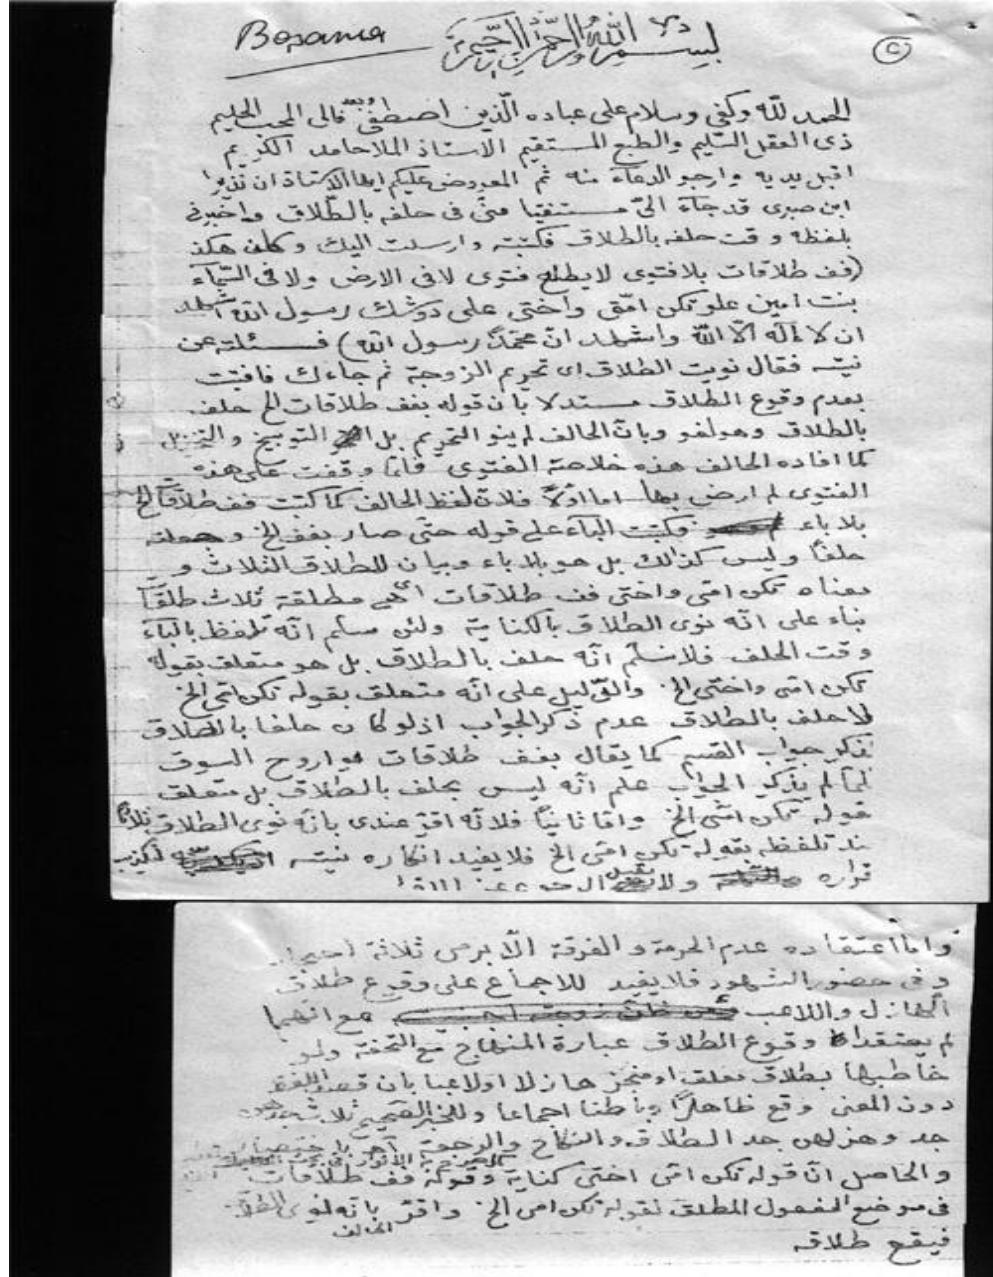 Bosania
بسم الله الرحمن الرحيم
الحمد لله وكفى وسلام على عباده الذين اصطفى وبعد فالى المحب الحليم
ذى العقل السليم والطبع المستقيم الاستاذ الملا حامد الكريم
اقبل يديه وارجو الدعاء منه ثم المعروض عليكم ايها الاستاذ ان
ابن صبرى قد جاء الىّ مستفتيا منى فى حلفه بالطلاق واخبرنى
بلفظه وقت حلفه بالطلاق فكتبته وارسلت اليك وكان هكذ
(فف طلاقات بلا فتوى لا يطلع فتوى لا فى الارض ولا فى السماء
بنت امين علو تكن امّى واختى على دوشك رسول الله اشهد
ان لا اله الا الله واشهد انّ محمدًا رسول الله) فسئلته عن
نيته فقال نويت الطلاق اى تحريم الزوجة ثم جاءك فافتيت
بعدم وقوع الطلاق مستدلا بأن قوله بفف طلاقات الخ حلف
بالطلاق وهو لغو وبانّ الحالف لم ينو التحريم بل التوبيخ و
كما افاده الحالف هذه خلاصة الفتوى فلمّا وقفت على هذه
الفتوى لم ارض بها اما اولاً فلانّ لفظ الحالف كما كتبت فف طلاقات الخ
بلا باء فكتبت الباء على قوله حتى صار بفف الخ وجعلته
حلفًا وليس كذلك بل هو بلا باء وبيان للطلاق الثلاث و
معناه تكن امّى واختى فف طلاقات اى مطلقة ثلاث طلقات
بناء على انّه نوى الطلاق بالكناية ولئن سلّم انّه تلفظ بالباء
وقت الحلف فلا نسلّم انّه حلف بالطلاق بل هو متعلق بقوله
تكن امّى واختى الخ والدّليل على انّه متعلق بقوله تكن امّى الخ
لا حلف بالطلاق عدم ذكر الجواب اذ لو كان حلفا بالطلاق
لذكر جواب القسم كما يقال بفف طلاقات ما اروح السوق
لما لم يذكر الجواب علم انّه ليس بحلف بالطلاق بل متعلق
بقوله تكن امّى الخ وامّا ثانيًا فلانّه اقرّ عندى بانّه نوى الطلاق ثلاثا
عند تلفظه بقوله تكن امّى الخ فلا يفيد انكاره نيته
قراره ولا يقبل الرجوع عن
وامّا اعتقاده عدم الحرمة والفرقة الّا برمى ثلاثة احجار
وفى حضور الشهود فلا يفيد للاجماع على وقوع طلاق
الهازل واللاعب مع انهما
لم يعتقدا وقوع الطلاق عبارة المنهاج مع التحفة ولو
خاطبها بطلاق معلق او منجز هازلا او لاعبا بان قصد اللفظ
دون المعنى وقع ظاهرًا وباطنا اجماعا وللخبر الصحيح ثلاث جدهن
جد وهزلهن جد الطلاق والنكاح والرجعة اهـ
والحاصل انّ قوله تكن امّى اختى كناية وقوله فف طلاقات
فى موضع المفعول المطلق لقوله تكن امّى الخ واقرّ الحالف بانّه نوى الطلاق
فيقع طلاقه